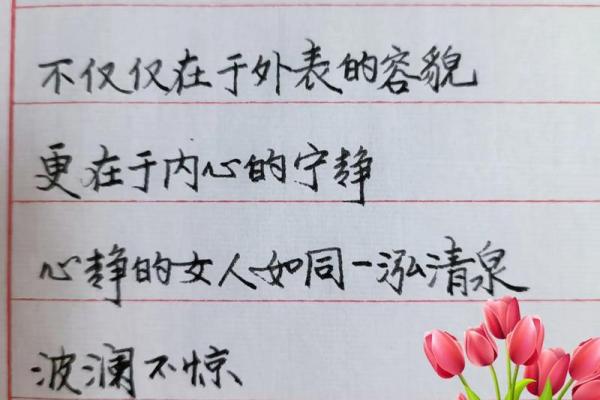 不仅仅在于外表的容貌
更在于内心的宁静
心静的女人如同一泓清泉
波澜不惊